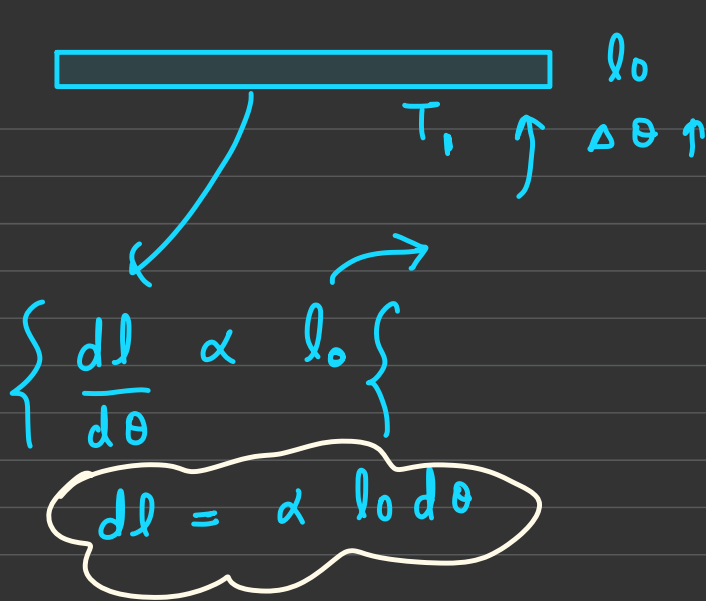 l₀
T₁ ↑ Δθ ↑
{ dl/dθ ∝ l₀ }
dl = α l₀ dθ